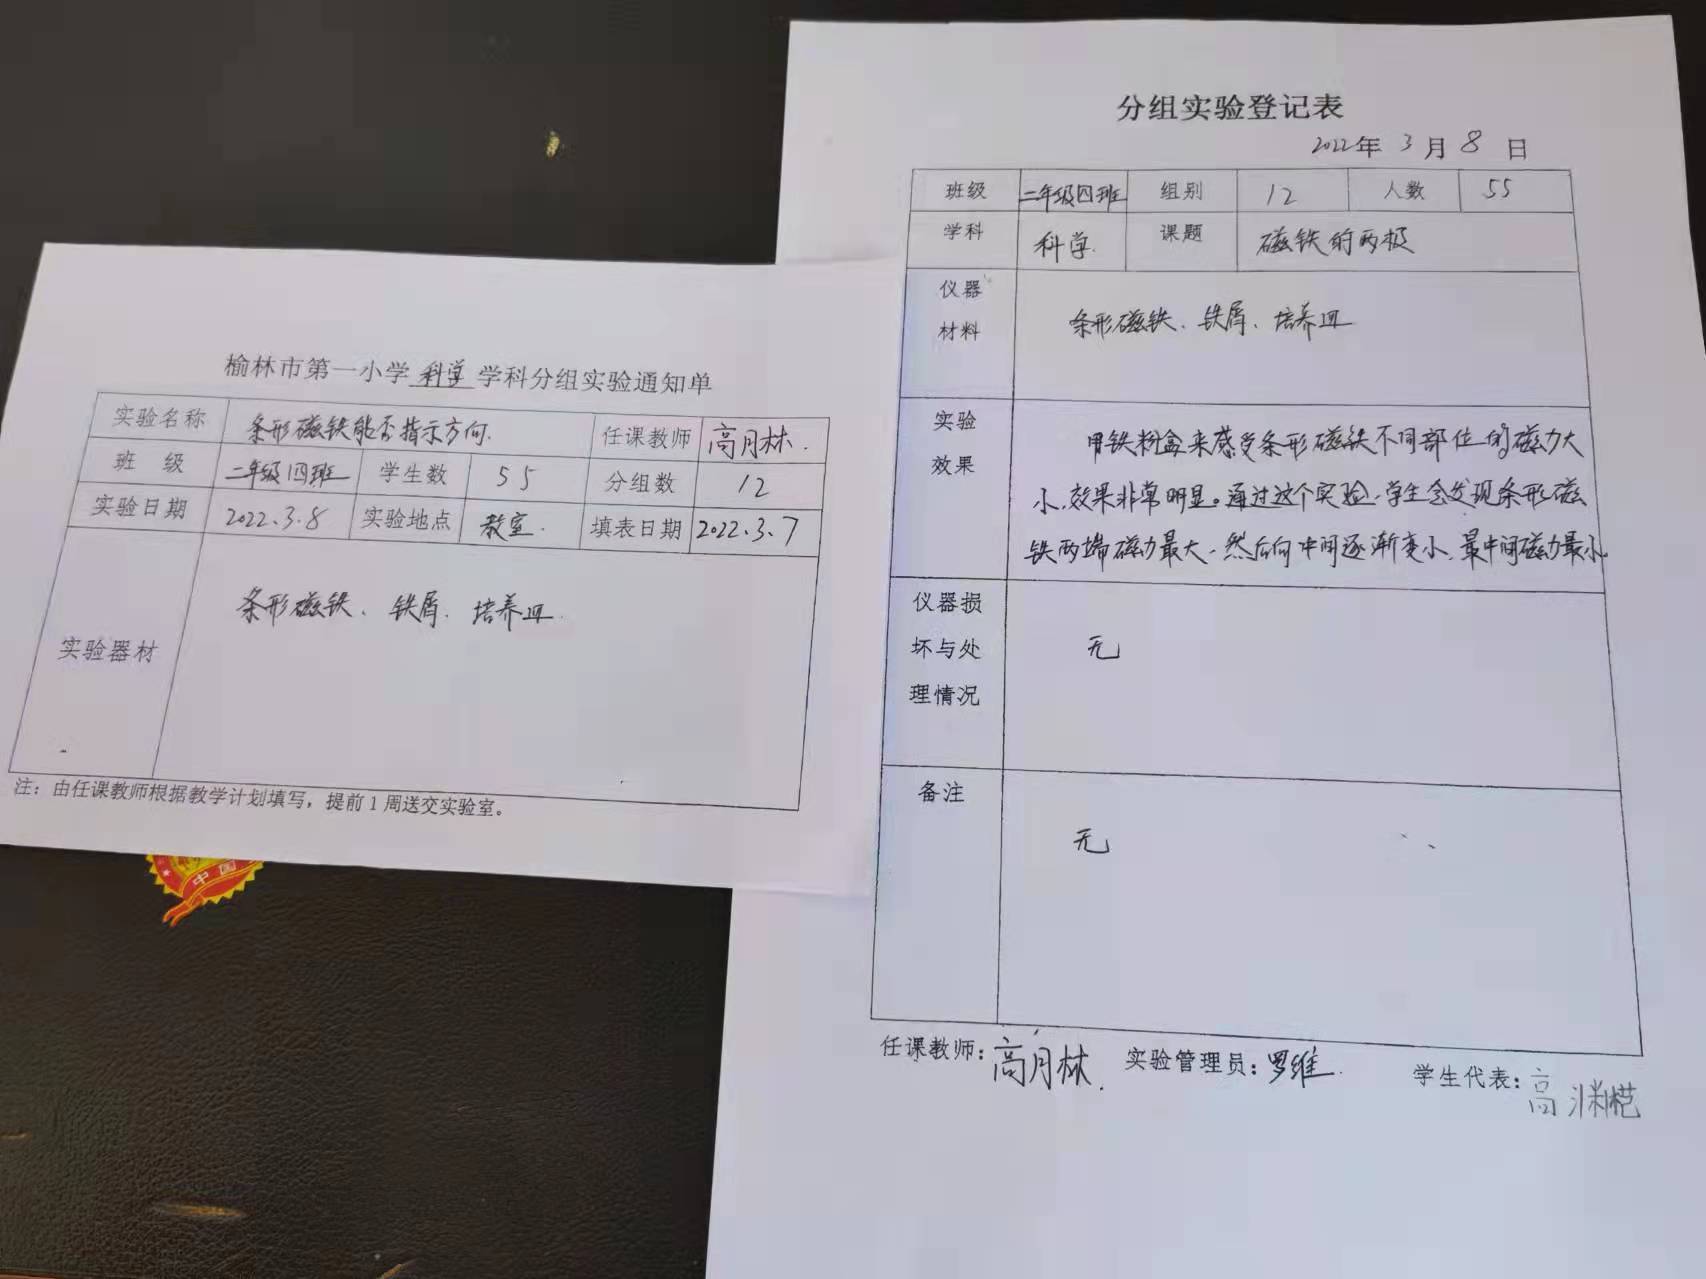 榆林市第一小学科学学科分组实验通知单
实验名称 条形磁铁能否指示方向. 任课教师 高月林.
班 级 二年级四班 学生数 55 分组数 12
实验日期 2022.3.8 实验地点 教室. 填表日期 2022.3.7
实验器材 条形磁铁、铁屑、培养皿.
注：由任课教师根据教学计划填写，提前1周送交实验室。
中国
分组实验登记表
2022年 3 月 8 日
班级 二年级四班 组别 12 人数 55
学科 科学. 课题 磁铁的两极
仪器
材料
条形磁铁、铁屑、培养皿
实验
效果
用铁粉盒来感受条形磁铁不同部位的磁力大
小,效果非常明显。通过这个实验,学生会发现条形磁
铁两端磁力最大,然后向中间逐渐变小,最中间磁力最小
仪器损
坏与处
理情况
无
备注
无
任课教师：高月林. 实验管理员：罗维. 学生代表：高